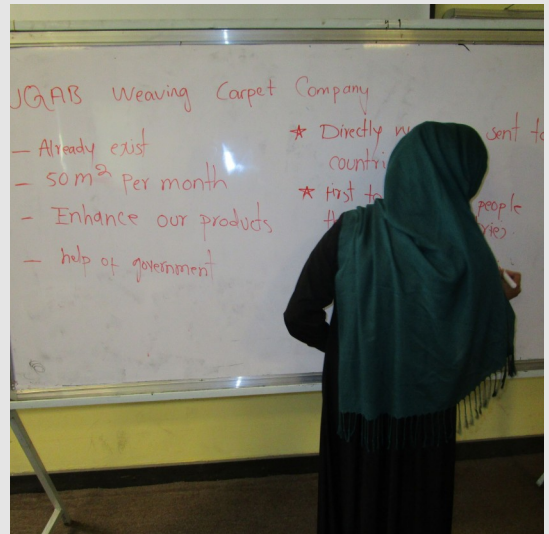 UQAB Weaving Carpet Company
– Already exist
– 50 m² Per month
– Enhance our products
– help of government
★ Directly sent to
countri
★ First
people
ries.